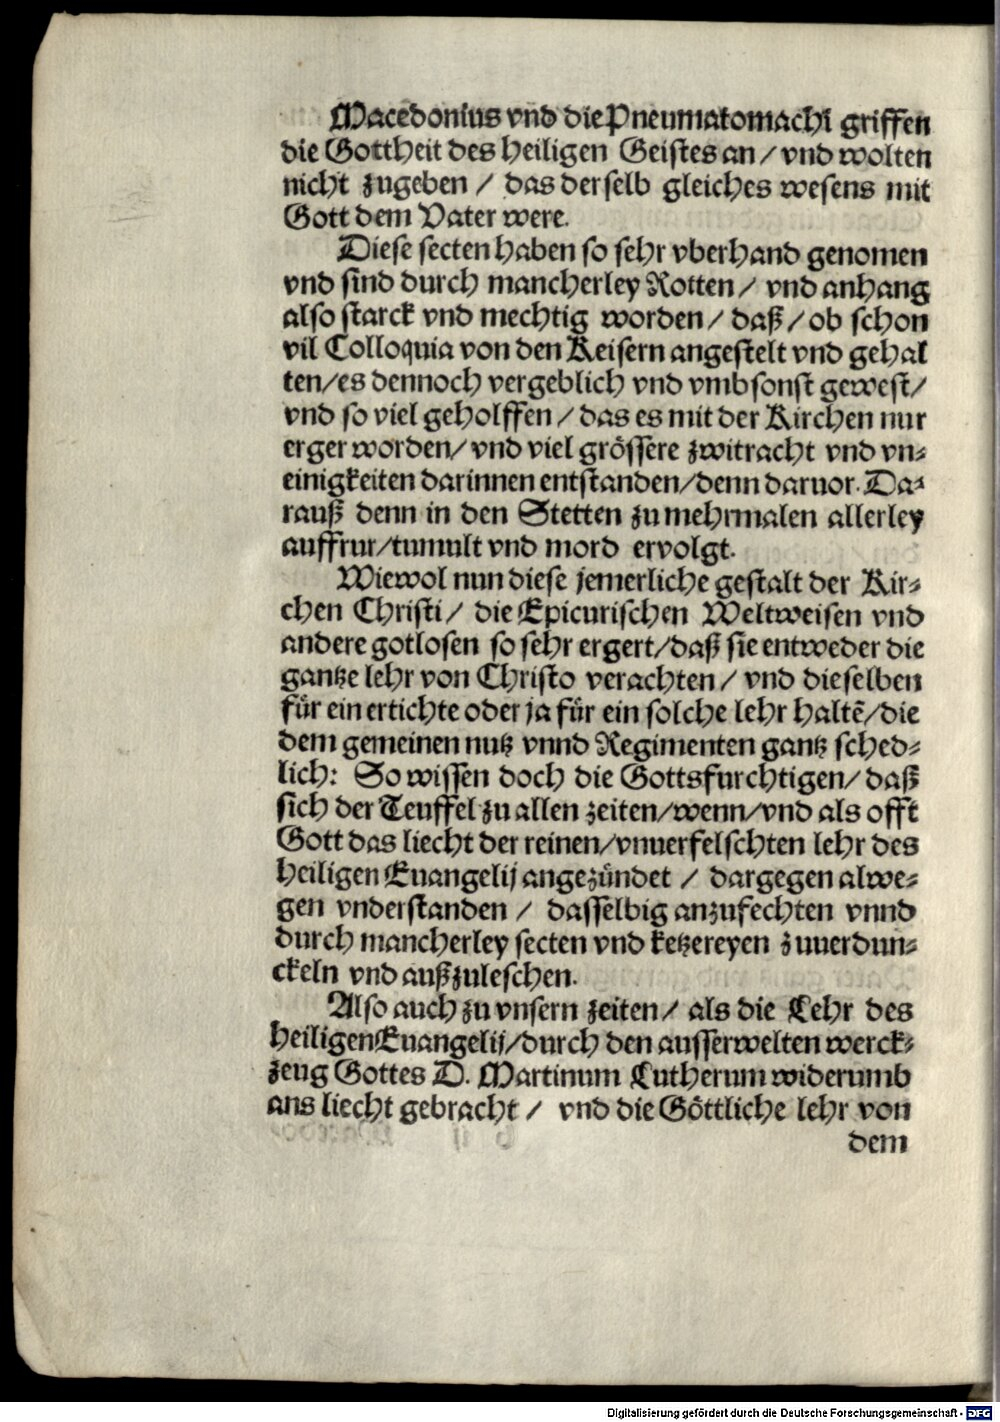 Macedonius vnd die Pneumatomachi griffen
die Gottheit des heiligen Geistes an / vnd wolten
nicht zugeben / das derselb gleiches wesens mit
Gott dem Vater were.
Diese secten haben so sehr vberhand genomen
vnd sind durch mancherley Rotten / vnd anhang
also starck vnd mechtig worden / daß / ob schon
vil Colloquia von den Keisern angestelt vnd gehal
ten / es dennoch vergeblich vnd vmbsonst gewest /
vnd so viel geholffen / das es mit der Kirchen nur
erger worden / vnd viel grössere zwitracht vnd vn-
einigkeiten darinnen entstanden / denn daruor. Da-
rauß denn in den Stetten zu mehrmalen allerley
auffrur / tumult vnd mord ervolgt.
Wiewol nun diese jemerliche gestalt der Kir-
chen Christi / die Epicurischen Weltweisen vnd
andere gotlosen so sehr ergert / daß sie entweder die
gantze lehr von Christo verachten / vnd dieselben
für ein ertichte oder ja für ein solche lehr haltē / die
dem gemeinen nutz vnnd Regimenten gantz sched-
lich: So wissen doch die Gottsfurchtigen / daß
sich der Teuffel zu allen zeiten / wenn / vnd als offt
Gott das liecht der reinen / vnuerfelschten lehr des
heiligen Euangelij angezündet / dargegen alwe-
gen vnderstanden / dasselbig anzufechten vnnd
durch mancherley secten vnd ketzereyen zuuerdun-
ckeln vnd außzuleschen.
Also auch zu vnsern zeiten / als die Lehr des
heiligen Euangelij / durch den ausserwelten werck-
zeug Gottes D. Martinum Lutherum widerumb
ans liecht gebracht / vnd die Göttliche lehr von
dem
Digitalisierung gefördert durch die Deutsche Forschungsgemeinschaft - DFG